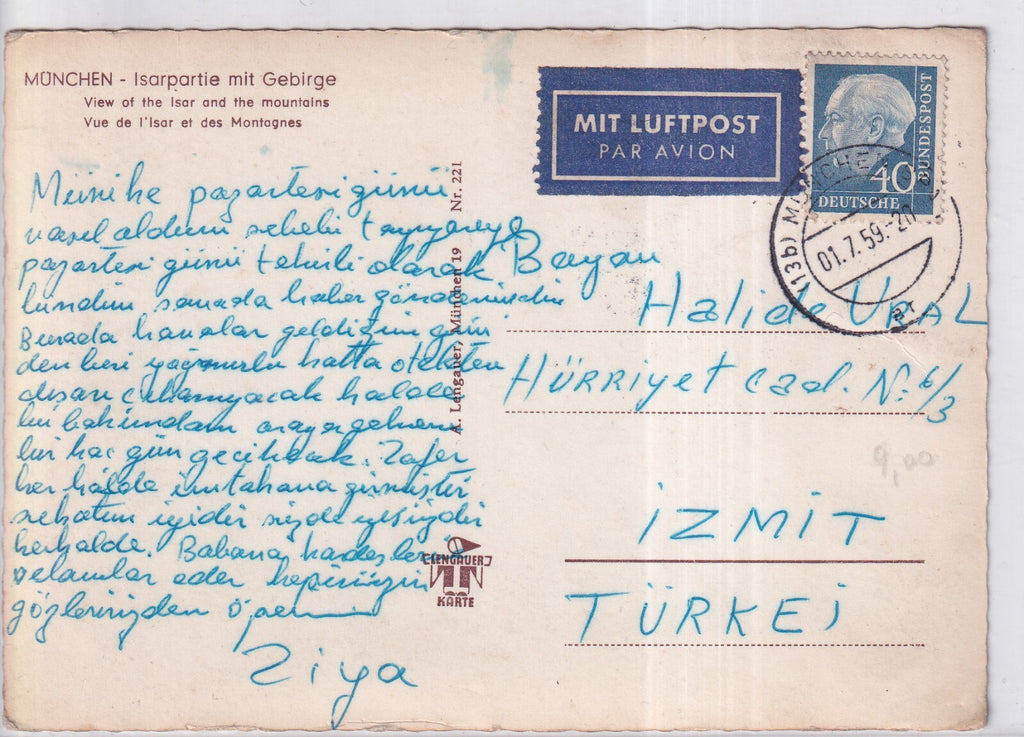 MÜNCHEN - Isarpartie mit Gebirge
View of the Isar and the mountains
Vue de l'Isar et des Montagnes
MIT LUFTPOST
PAR AVION
40
DEUTSCHE
BUNDESPOST
(13b) MÜNCHEN
01.7.59.-20
Münihe pazartesi günü
vasıl aldım sebebi
pazartesi günü tehirli olarak
bundan sana da haber gönderemedim
Burada havalar geldiğim gün
den beri yağmurlu hatta otelden
dışarı çıkamıyacak halde
bu bakımdan
bir kaç gün gecikecek. Zafer
her halde imtahana girmiştir
sıhatım iyidir sizde iyisinizdir
herhalde. Babana, kardeşlere
selamlar eder hepinizin
gözlerinizden öperim
Ziya
A. Lengauer, München 19 Nr. 221
LENGAUER
KARTE
Bayan
Halide URAL
HÜRRiyet cad. No: 6/3
9,00
İZMİT
TÜRKEi